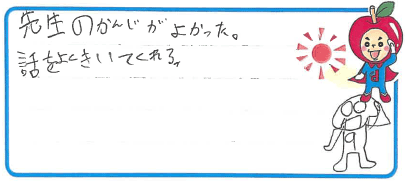 先生のかんじがよかった。
話をよくきいてくれる。